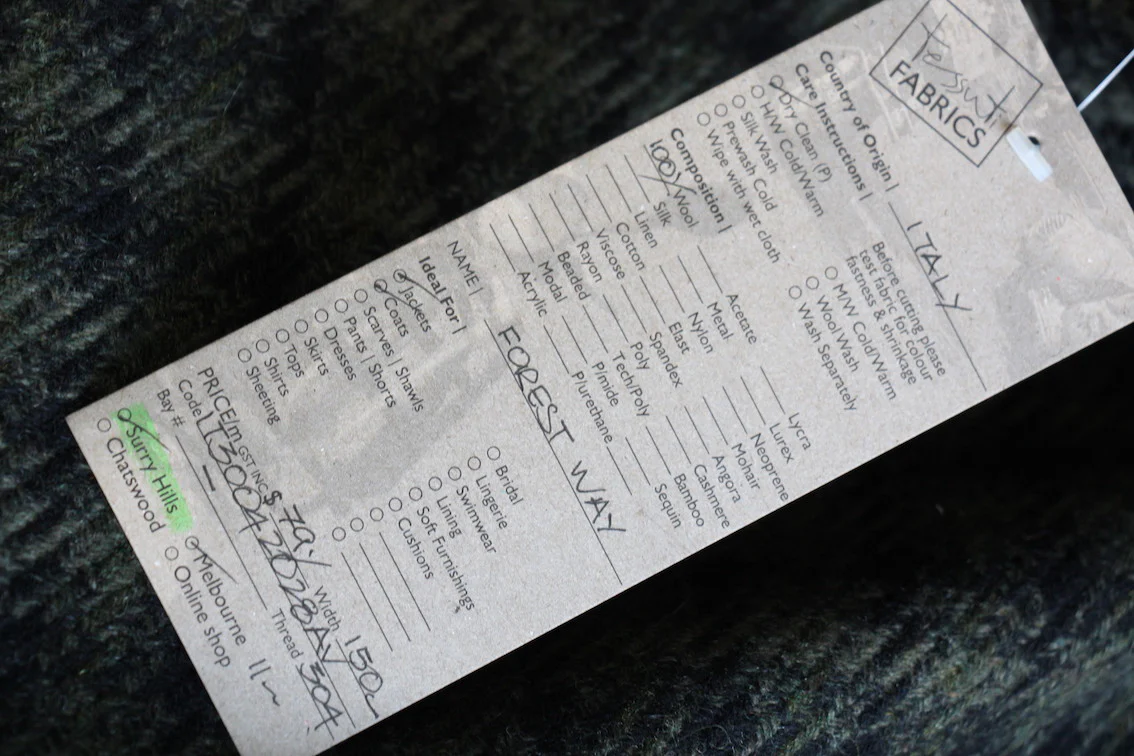 Tessuti
FABRICS
Country of Origin | ITALY
Care Instructions | Before cutting please
test fabric for colour
fastness & shrinkage
Dry Clean (P)
H/W Cold/Warm
Silk Wash
Prewash Cold
Wipe with wet cloth
M/W Cold/Warm
Wool Wash
Wash Separately
Composition |
100% Wool
Silk
Linen
Cotton
Viscose
Rayon
Beaded
Modal
Acrylic
Acetate
Metal
Nylon
Elast
Spandex
Poly
Tech/Poly
P/mide
P/urethane
Lycra
Lurex
Neoprene
Mohair
Angora
Cashmere
Bamboo
Sequin
NAME | FOREST WAY
Ideal For |
Jackets
Coats
Scarves | Shawls
Pants | Shorts
Dresses
Skirts
Tops
Shirts
Sheeting
Bridal
Lingerie
Swimwear
Lining
Soft Furnishings
Cushions
PRICE/m GST INC $ 79./ Width 150
Code Thread 304
Bay #
Surry Hills
Chatswood
Melbourne
Online shop